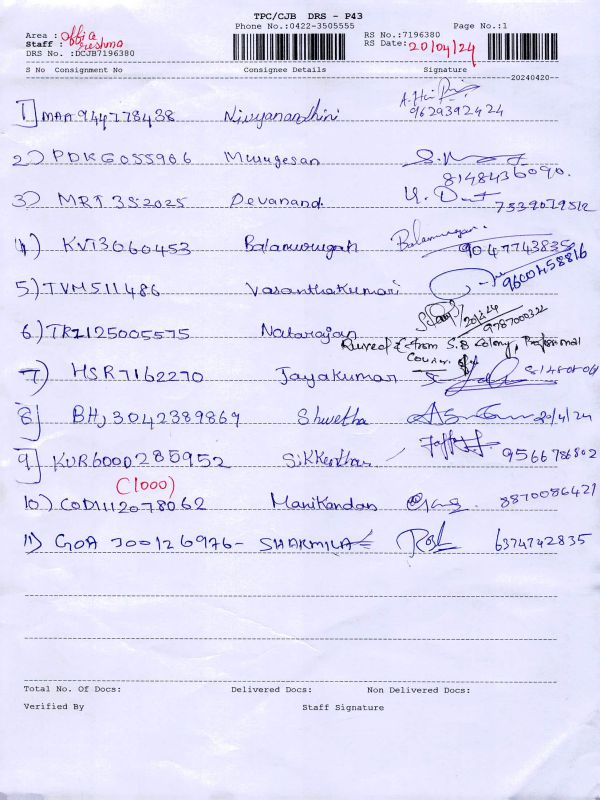 TPC/CJB DRS - P43
Phone No.:0422-3505555 Page No.:1
Area : Office RS No.:7196380
Staff : Sushma RS Date: 20/04/24
DRS No. :DCJB7196380
S No Consignment No Consignee Details Signature
20240420--
1] MAA944778438 Nivyanandhini 9629392424
2) PDKG055906 Murugesan 8148436090.
3) MRT352025 Devanand 7339019512
4) KVT3060453 Balamurugan Balamurugan 9047743835
5) TVM511486 Vasanthakumari 9600458816
20/4/24
6) TRZ1125005575 Natarajan 978700032
from S.B Colony, Professional
7) HSR7162270 Jayakumar
8] BHJ3042389869 Shwetha 20/4/24
9] KUR6000285952 9566786802
(1000)
10) COD1112078062 Manikandan 8870086421
11) GOA300126976- SHARMILA 6374742835
Total No. Of Docs: Delivered Docs: Non Delivered Docs:
Verified By Staff Signature